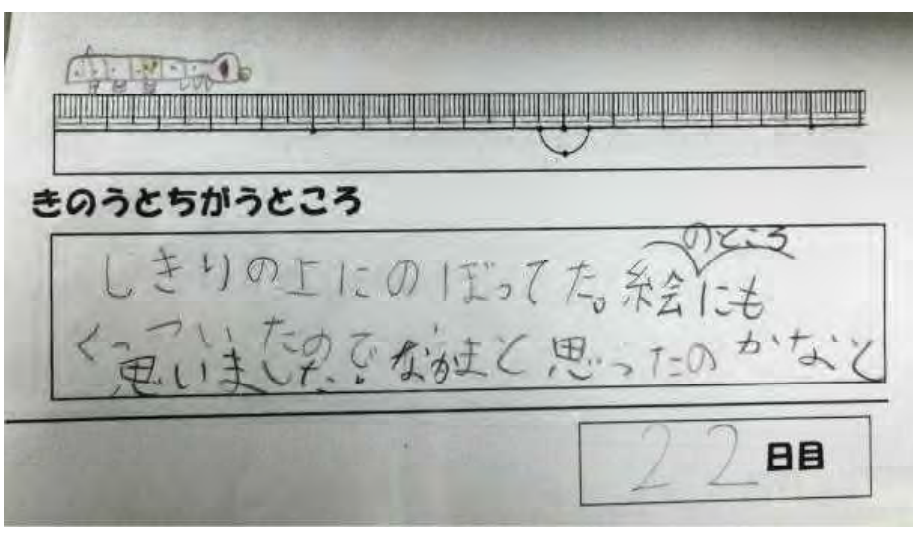 きのうとちがうところ
しきりの上にのぼってた。絵のところにも
くっついたのでなかまと思ったのかなと
思いました。
22日目